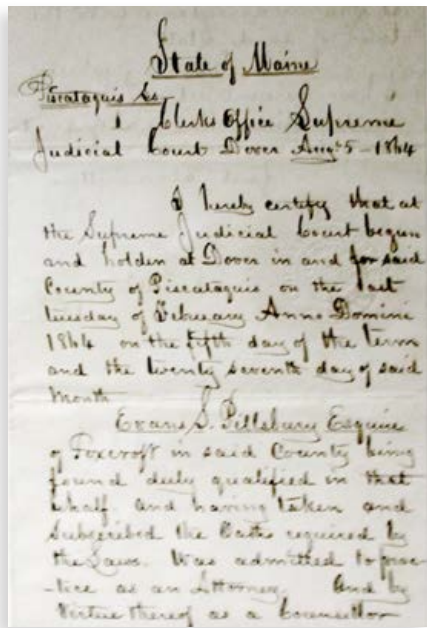 State of Maine
Piscataquis Ss
Clerks Office Supreme
Judicial Court Dover Augt 5 - 1864
I hereby certify that at
the Supreme Judicial Court begun
and holden at Dover in and for said
County of Piscataquis on the last
tuesday of February Anno Domini
1864 on the fifth day of the term
and the twenty seventh day of said
Month
Evans S. Pillsbury Esquire
of Foxcroft in said County being
found duly qualified in that
behalf and having taken and
Subscribed the Oaths required by
the Laws. Was admitted to prac-
-tice as an Attorney. And by
Virtue thereof as a Counsellor